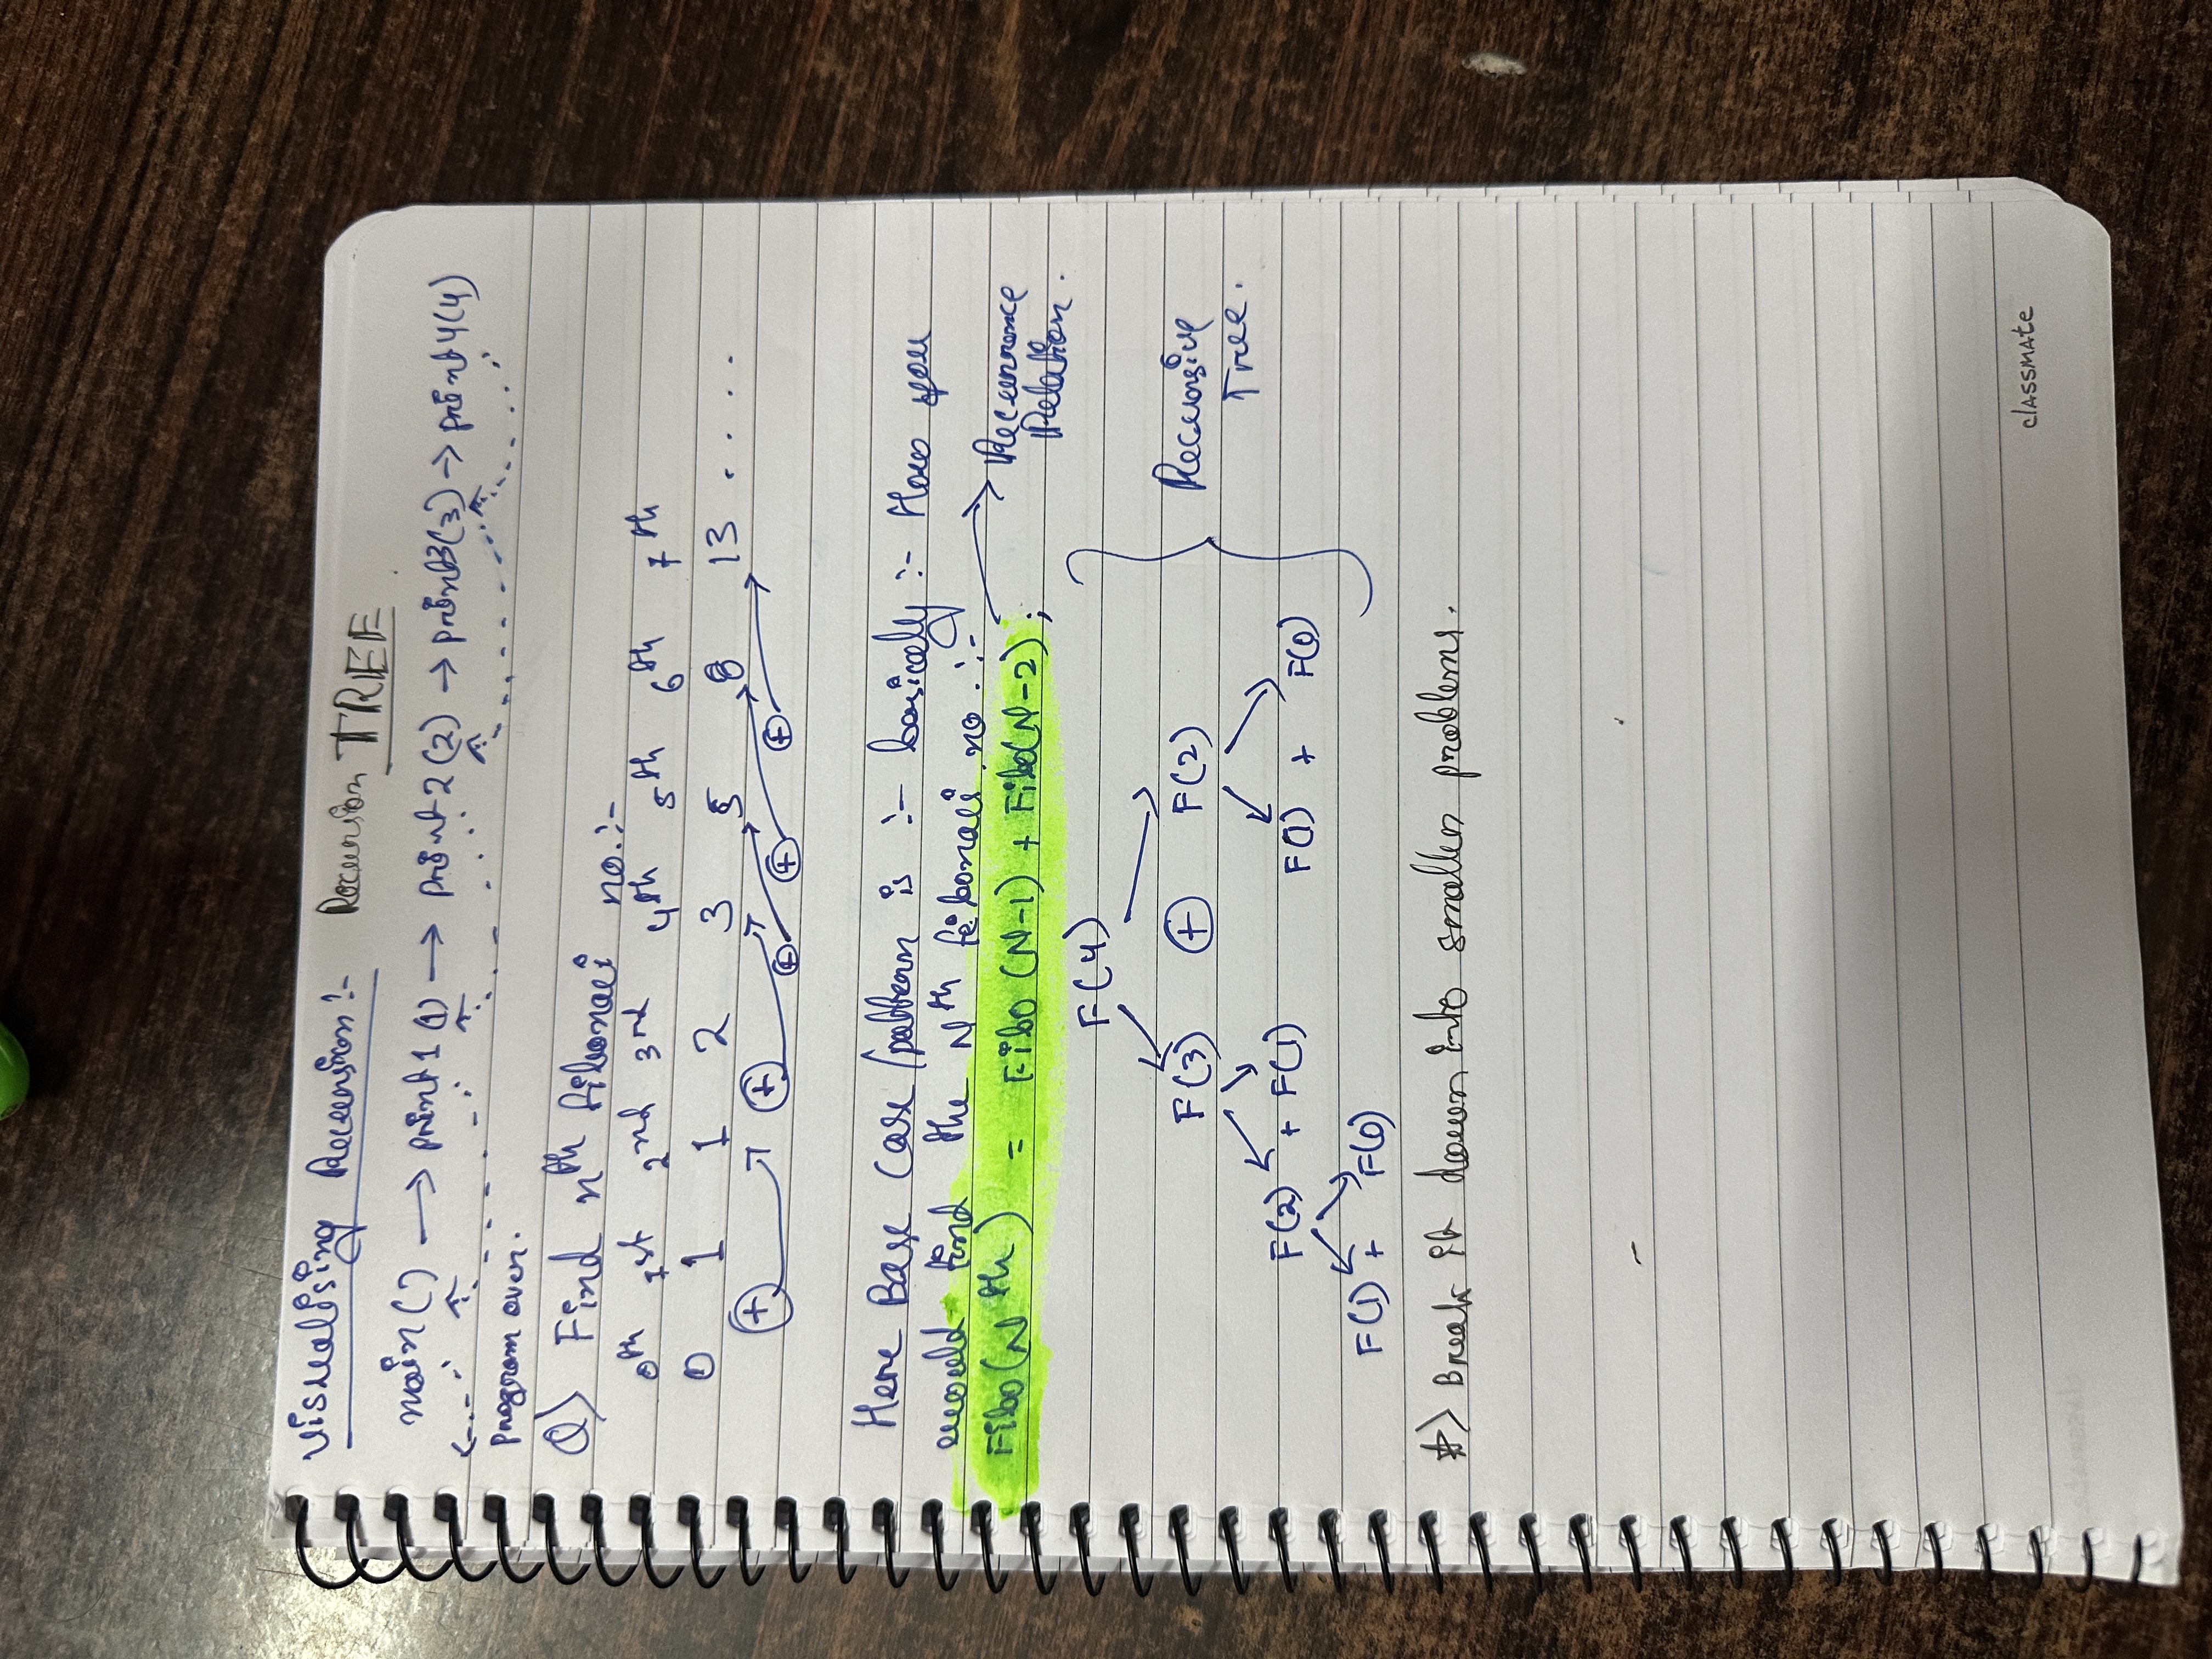 Visualising Recursion :- Recursion TREE
main() → print1(1) → print2(2) → print3(3) → print4(4)
program over.
Q) Find nth fibonaci no. :-
0th 1st 2nd 3rd 4th 5th 6th 7th
0 1 1 2 3 5 8 13 . . . .
+ + + + +
Here Base Case / pattern is :- basically :- How you
would find the Nth fibonaci no. :-
Fibo(Nth) = Fibo(N-1) + Fibo(N-2);
Recurrence
Relation.
F(4)
F(3) + F(2)
F(2) + F(1) F(1) + F(0)
F(1) + F(0)
Recursive
Tree.
*) Break it down into smaller problems.
classmate